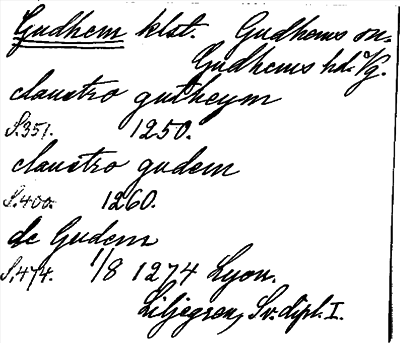 Gudhem klst. Gudhems sn.
Gudhems hd. Vg.
claustro gutheym
S.351. 1250.
claustro gudem
S.400. 1260.
de Gudem
S.474. 1/8 1274 Lyon.
Liljegren, Sv. dipl. I.